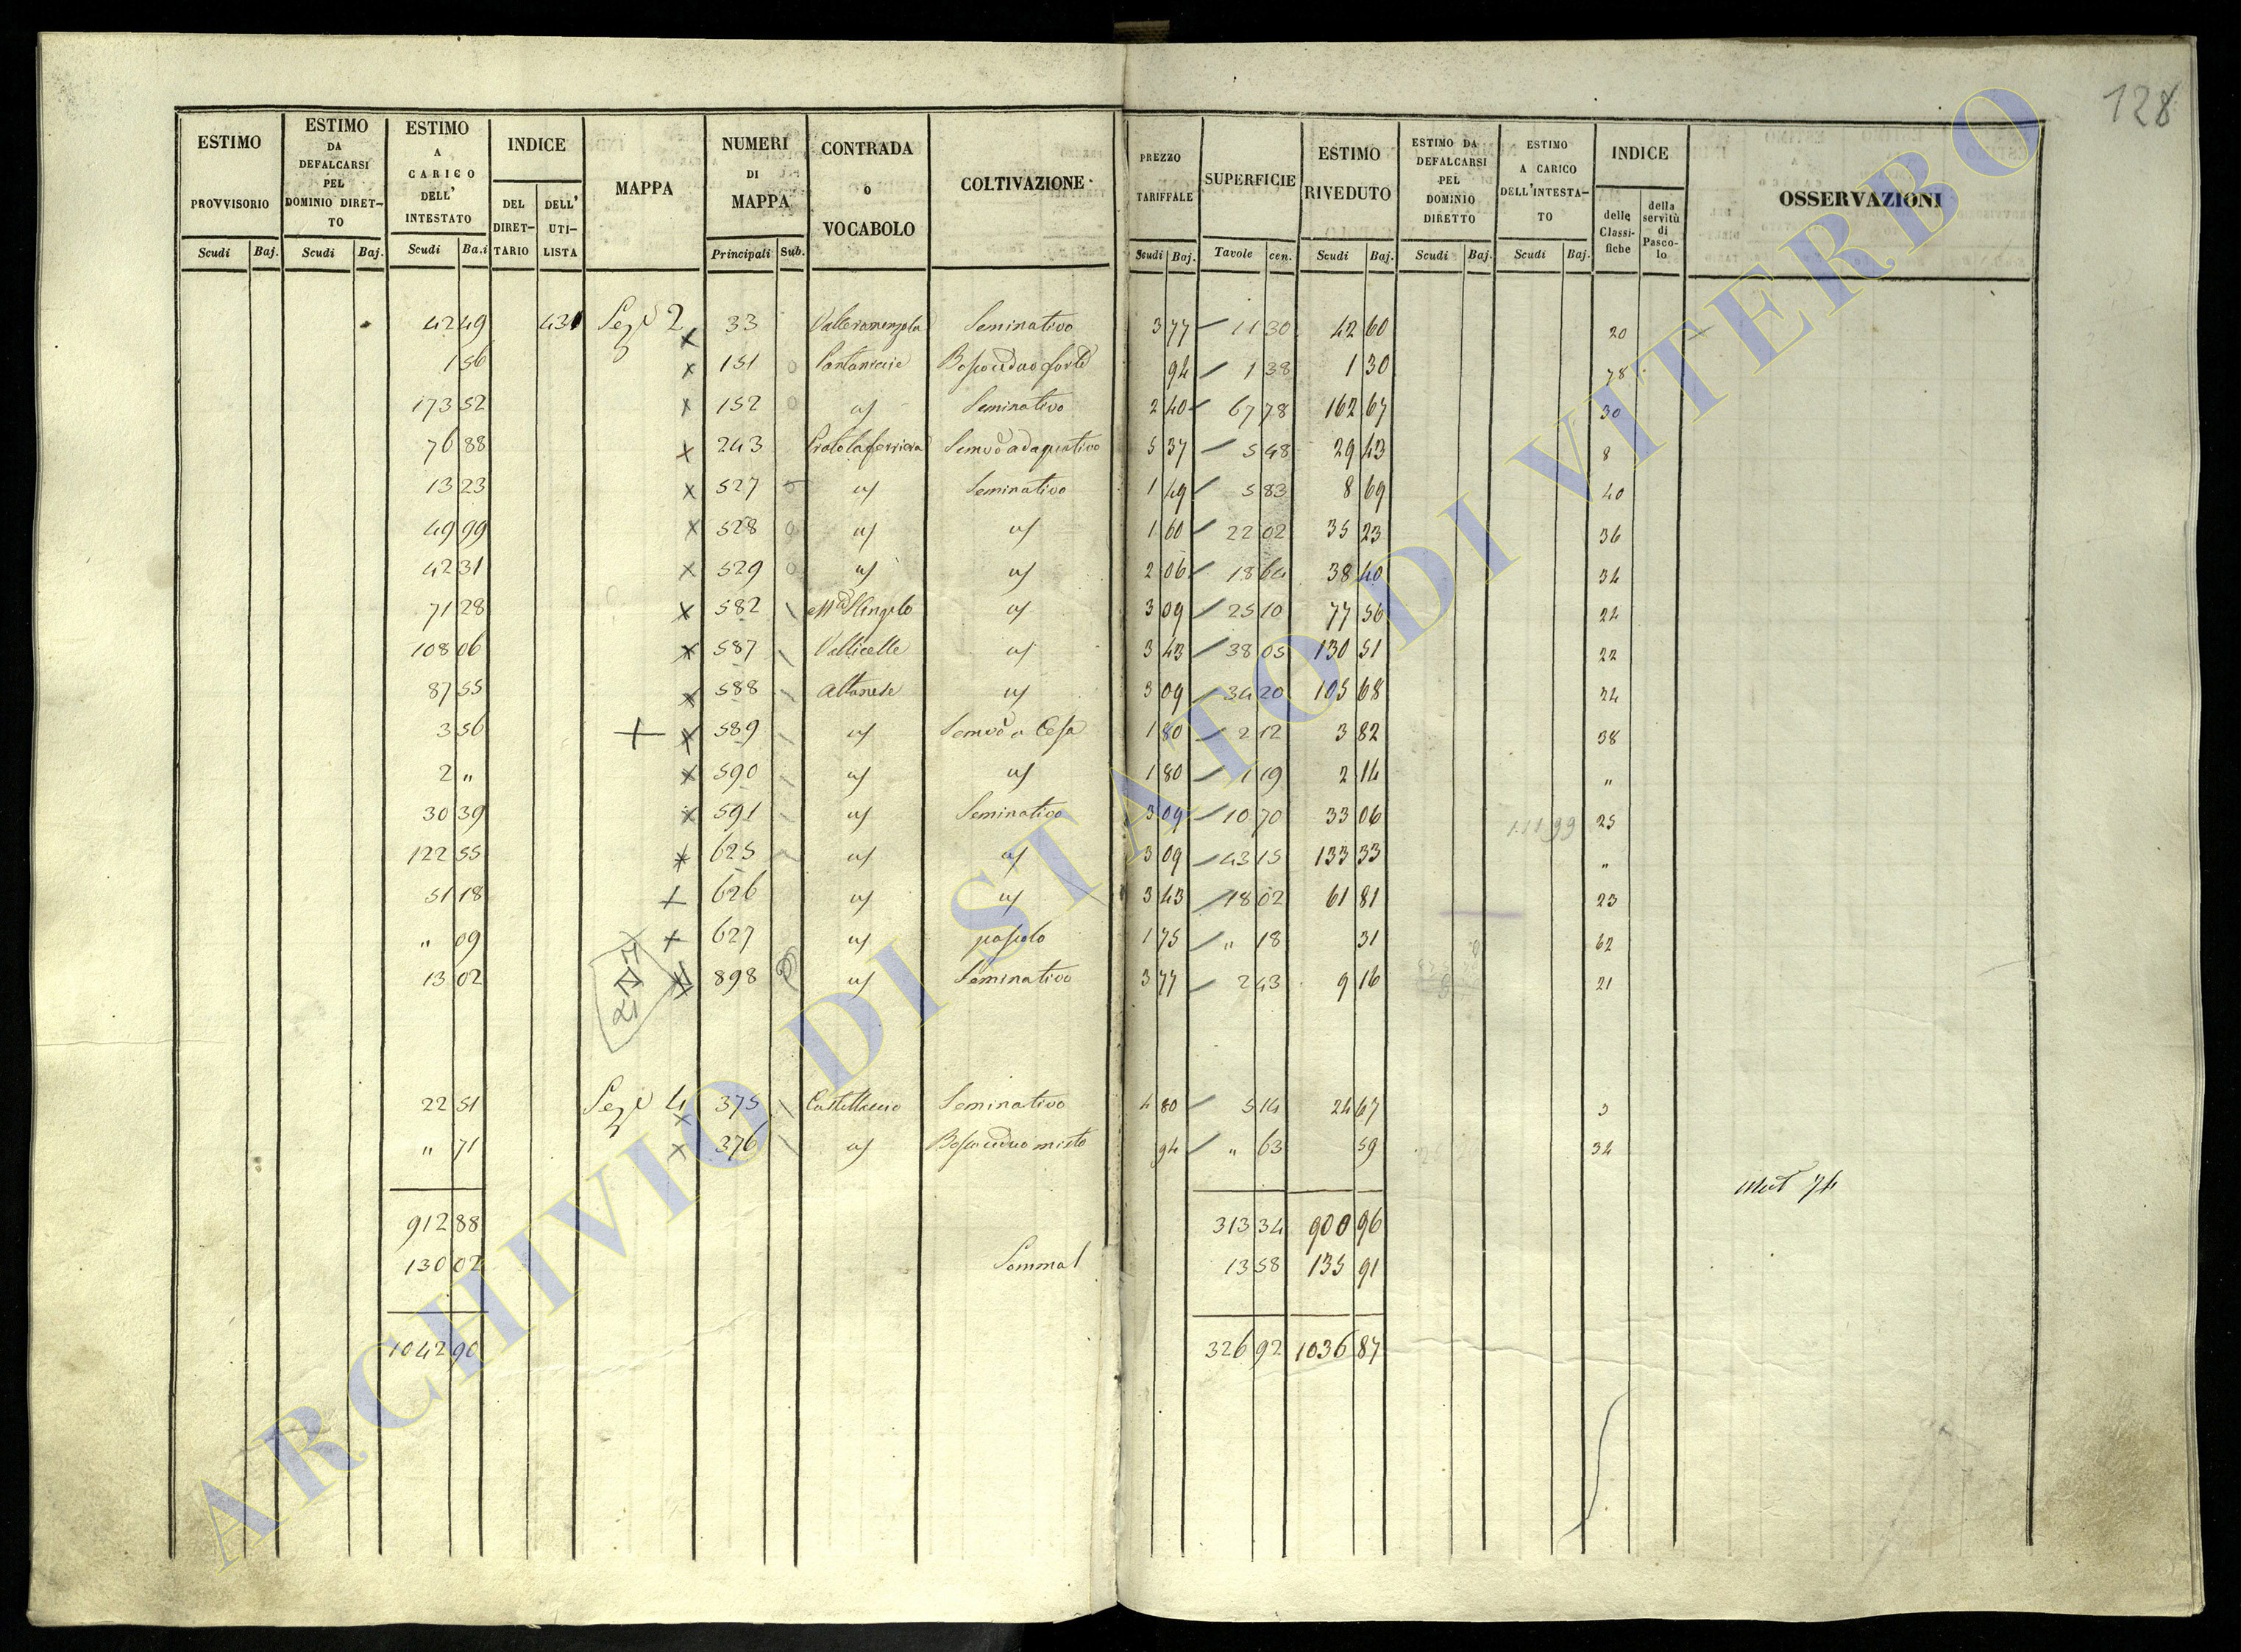 128
ESTIMO PROVVISORIO Scudi Baj.
ESTIMO DA DEFALCARSI PEL DOMINIO DIRETTO Scudi Baj.
ESTIMO A CARICO DELL' INTESTATO Scudi Ba.i
INDICE DEL DIRETTARIO DELL' UTILISTA
MAPPA
NUMERI DI MAPPA Principali Sub.
CONTRADA o VOCABOLO
COLTIVAZIONE
PREZZO TARIFFALE Scudi Baj.
SUPERFICIE Tavole cen.
ESTIMO RIVEDUTO Scudi Baj.
ESTIMO DA DEFALCARSI PEL DOMINIO DIRETTO Scudi Baj.
ESTIMO A CARICO DELL'INTESTATO Scudi Baj.
INDICE delle Classifiche della servitù di Pascolo
OSSERVAZIONI
42 49 431 Sez.e 2 x 33 Seminativo 3 77 11 30 42 60 20
1 56 x 151 0 94 1 38 1 30 78
173 52 x 152 0 " Seminativo 2 40 67 78 162 67 30
76 88 x 243 Pratolaferriera Semvo adaquativo 5 37 5 48 29 43 8
13 23 x 527 0 " Seminativo 1 49 5 83 8 69 40
49 99 x 528 0 " " 1 60 22 02 35 23 36
42 31 x 529 0 " " 2 06 18 64 38 40 34
71 28 x 582 S. Angelo " 3 09 25 10 77 56 24
108 06 x 587 Vallicelle " 3 43 38 05 130 51 22
87 55 x 588 Altanese " 3 09 34 20 105 68 24
3 56 + x 589 " Semvo a Cesa 1 80 2 12 3 82 38
2 " x 590 " " 1 80 1 19 2 14 "
30 39 x 591 " Seminativo 3 09 10 70 33 06 111 99 25
122 55 x 625 " " 3 09 43 15 133 33 "
51 18 + 626 " " 3 43 18 02 61 81 23
" 09 + 627 " pascolo 1 75 " 18 31 62
13 02 x 898 " Seminativo 3 77 2 43 9 16 21
22 51 Sez.e 4 x 375 Castellaccio Seminativo 4 80 5 14 24 67 3
" 71 x 376 " Bosco ceduo misto 94 " 63 59 34
912 88 313 34 900 96
130 02 Somma 13 58 135 91
1042 90 326 92 1036 87
ARCHIVIO DI STATO DI VITERBO